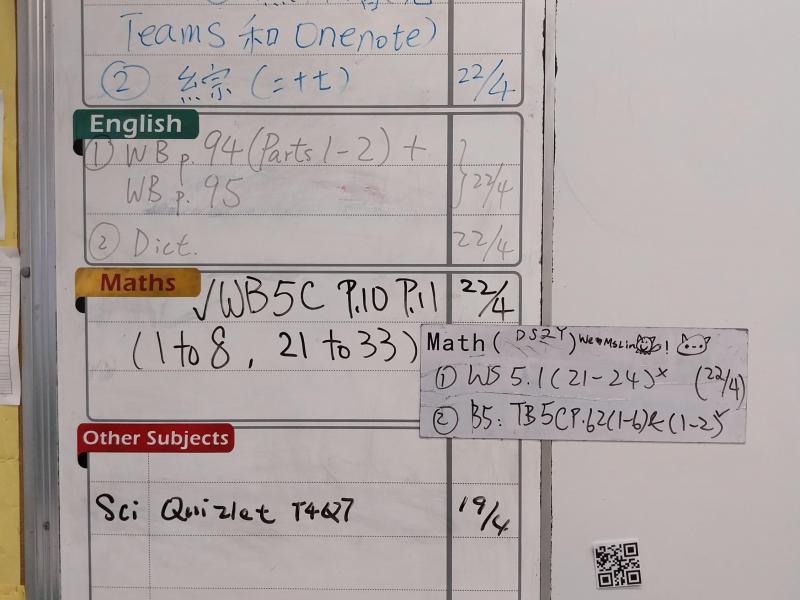 Teams 和 Onenote)
② 綜 (=++)  22/4
English
① WB p. 94 (Parts 1-2) +
WB p. 95 } 22/4
② Dict. 22/4
Maths
√WB5C P.10 P.11 22/4
(1 to 8, 21 to 33)
Math ( DS2Y ) We♥MsLin !
① WS 5.1 (21-24)x (22/4)
② B5: TB5C P.62 (1-6) & (1-2)
Other Subjects
Sci Quizlet T4Q7 19/4